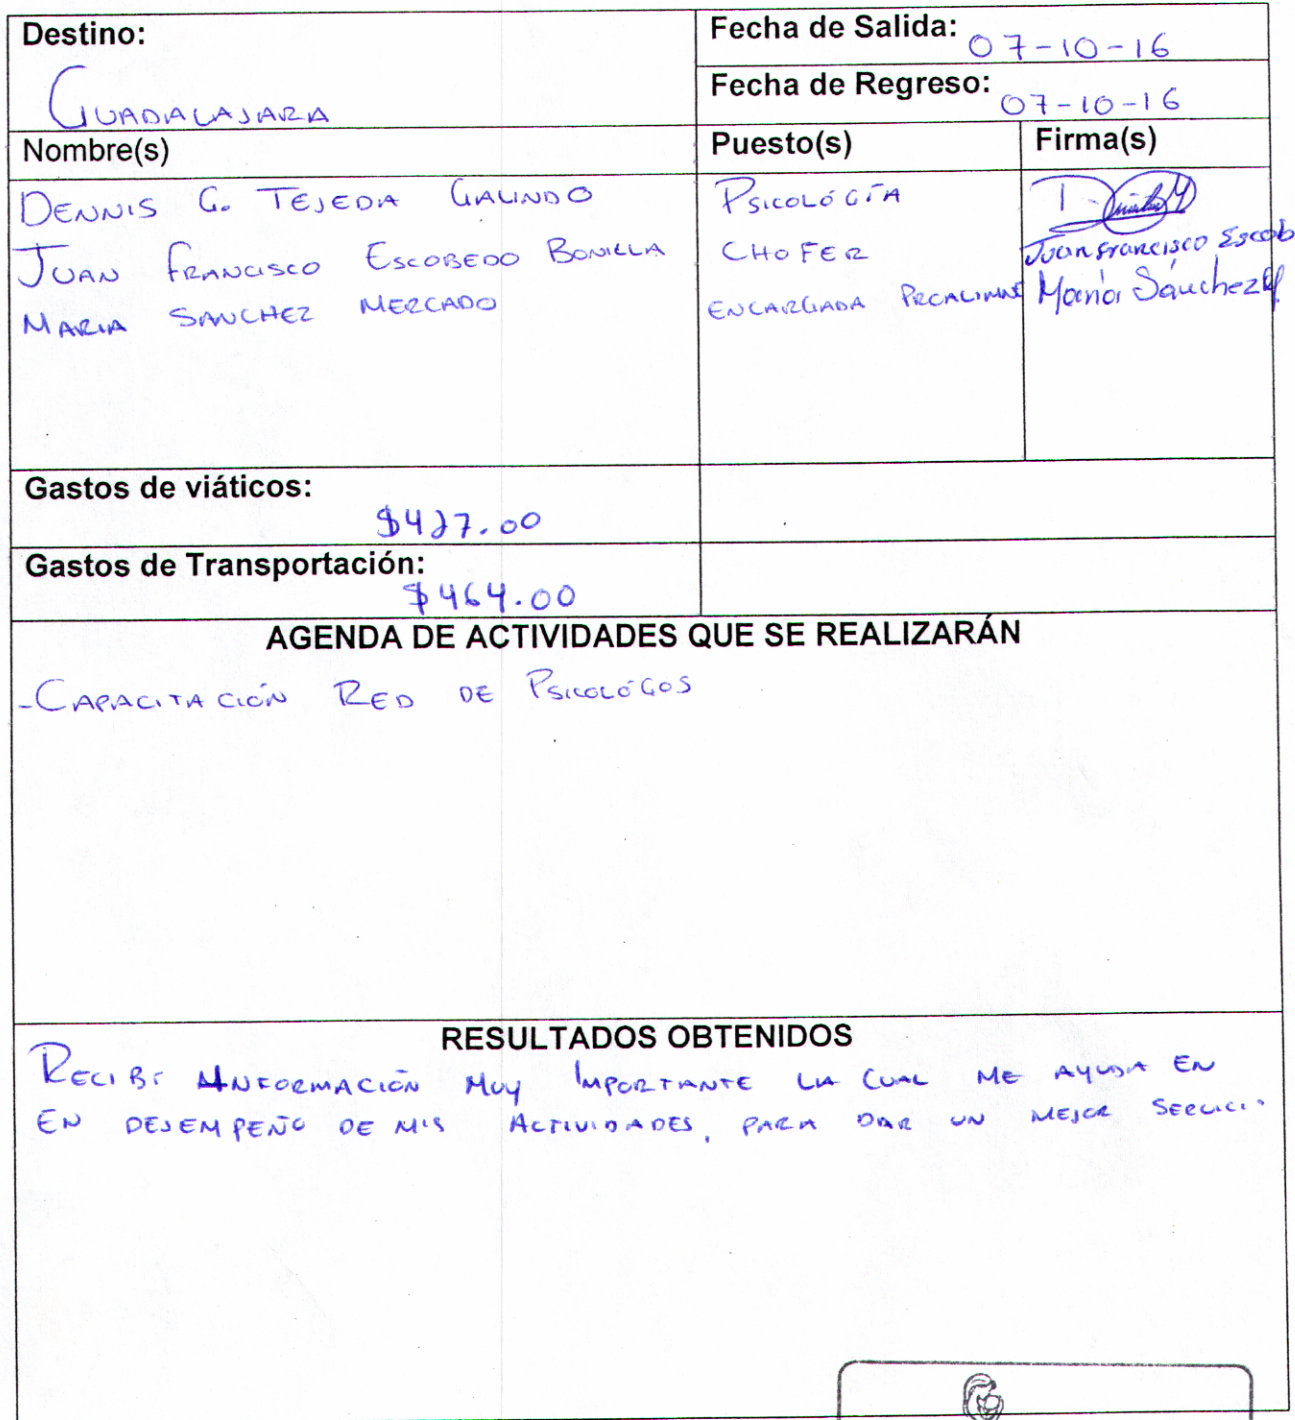 Destino:
GUADALAJARA
Fecha de Salida: 07-10-16
Fecha de Regreso: 07-10-16
Nombre(s) Puesto(s) Firma(s)
DENNIS G. TEJEDA GALINDO PSICOLÓGÍA
JUAN FRANCISCO ESCOBEDO BONILLA CHOFER Juan francisco Escob
MARIA SANCHEZ MERCADO ENCARGADA María Sánchez
Gastos de viáticos:
$427.00
Gastos de Transportación:
$464.00
AGENDA DE ACTIVIDADES QUE SE REALIZARÁN
-CAPACITACIÓN RED DE PSICOLÓGOS
RESULTADOS OBTENIDOS
RECIBÍ INFORMACIÓN MUY IMPORTANTE LA CUAL ME AYUDA EN
EN DESEMPEÑO DE MIS ACTIVIDADES, PARA DAR UN MEJOR SERVICIO